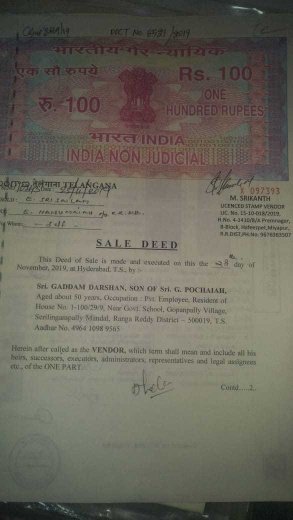 DOCT NO.
/2019
भारतीय गैर न्यायिक
एक सौ रुपये
Rs. 100
रु. 100
ONE
HUNDRED RUPEES
भारत INDIA
INDIA NON JUDICIAL
తెలంగాణ TELANGANA
097393
M. SRIKANTH
LICENCED STAMP VENDOR
H.No. 4-
B-Block, Hafeezpet, Miyapur,
R.R.DIST, PH.No: 9676383507
SALE DEED
This Deed of Sale is made and executed on this the 28th day of
November, 2019, at Hyderabad, T.S., by :
Sri. GADDAM DARSHAN, SON OF Sri. G. POCHAIAH,
Aged about 50 years, Occupation : Pvt. Employee, Resident of
House No. 1-100/29/9, Near Govt. School, Gopanpally Village,
Serilingampally Mandal, Ranga Reddy District – 500019, T.S.
Aadhar No. 4964 1098 9565
Herein after called as the VENDOR, which term shall mean and include all his
heirs, successors, executors, administrators, representatives and legal assignees
etc., of the ONE PART.
Contd...2.